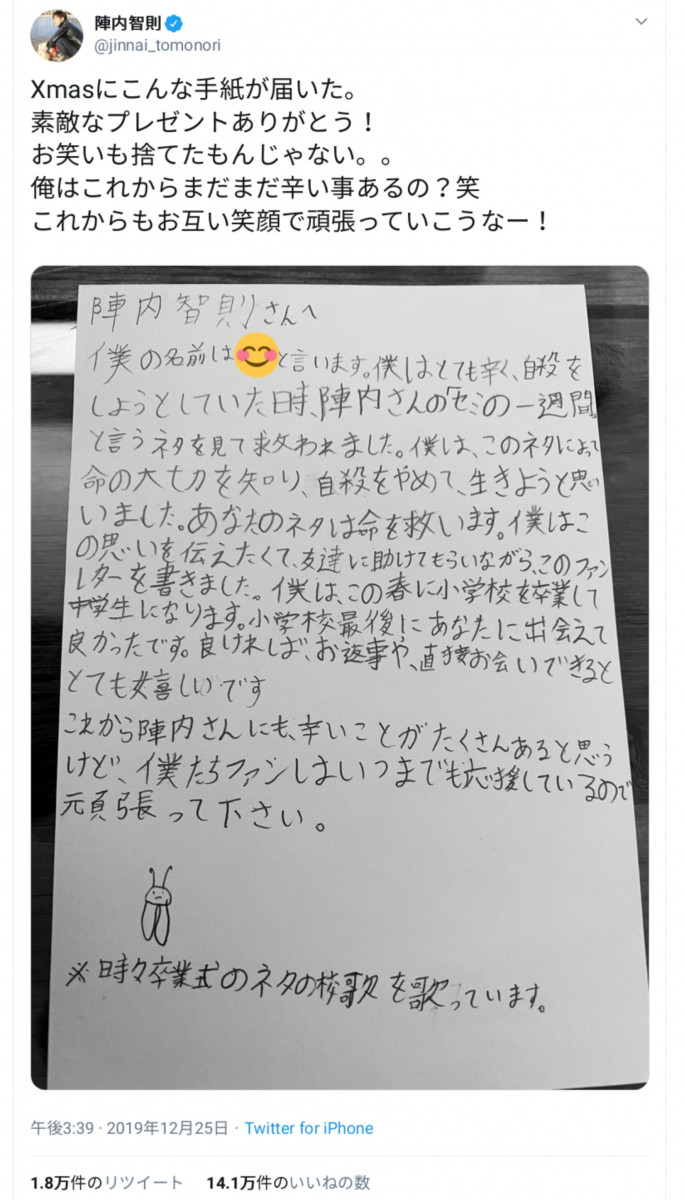 陣内智則
@jinnai_tomonori
Xmasにこんな手紙が届いた。
素敵なプレゼントありがとう！
お笑いも捨てたもんじゃない。。
俺はこれからまだまだ辛い事あるの？笑
これからもお互い笑顔で頑張っていこうなー！
陣内智則さんへ
僕の名前は😊と言います。僕はとても辛く、自殺を
しようとしていた時、陣内さんの「セミの一週間」
と言うネタを見て救われました。僕は、このネタによって
命の大切を知り、自殺をやめて、生きようと思い
いました。あなたのネタは命を救います。僕はこ
の思いを伝えたくて、友達に助けてもらいながら、このファン
レターを書きました。僕は、この春に小学校を卒業して
中学生になります。小学校最後にあなたに出会えて
良かったです。良ければ、お返事や、直接お会いできると
とても嬉しいです
これから陣内さんにも、辛いことがたくさんあると思う
けど、僕たちファンはいつまでも応援しているので
頑張って下さい。
※時々卒業式のネタの校歌を歌っています。
午後3:39 · 2019年12月25日 · Twitter for iPhone
1.8万件のリツイート 14.1万件のいいねの数